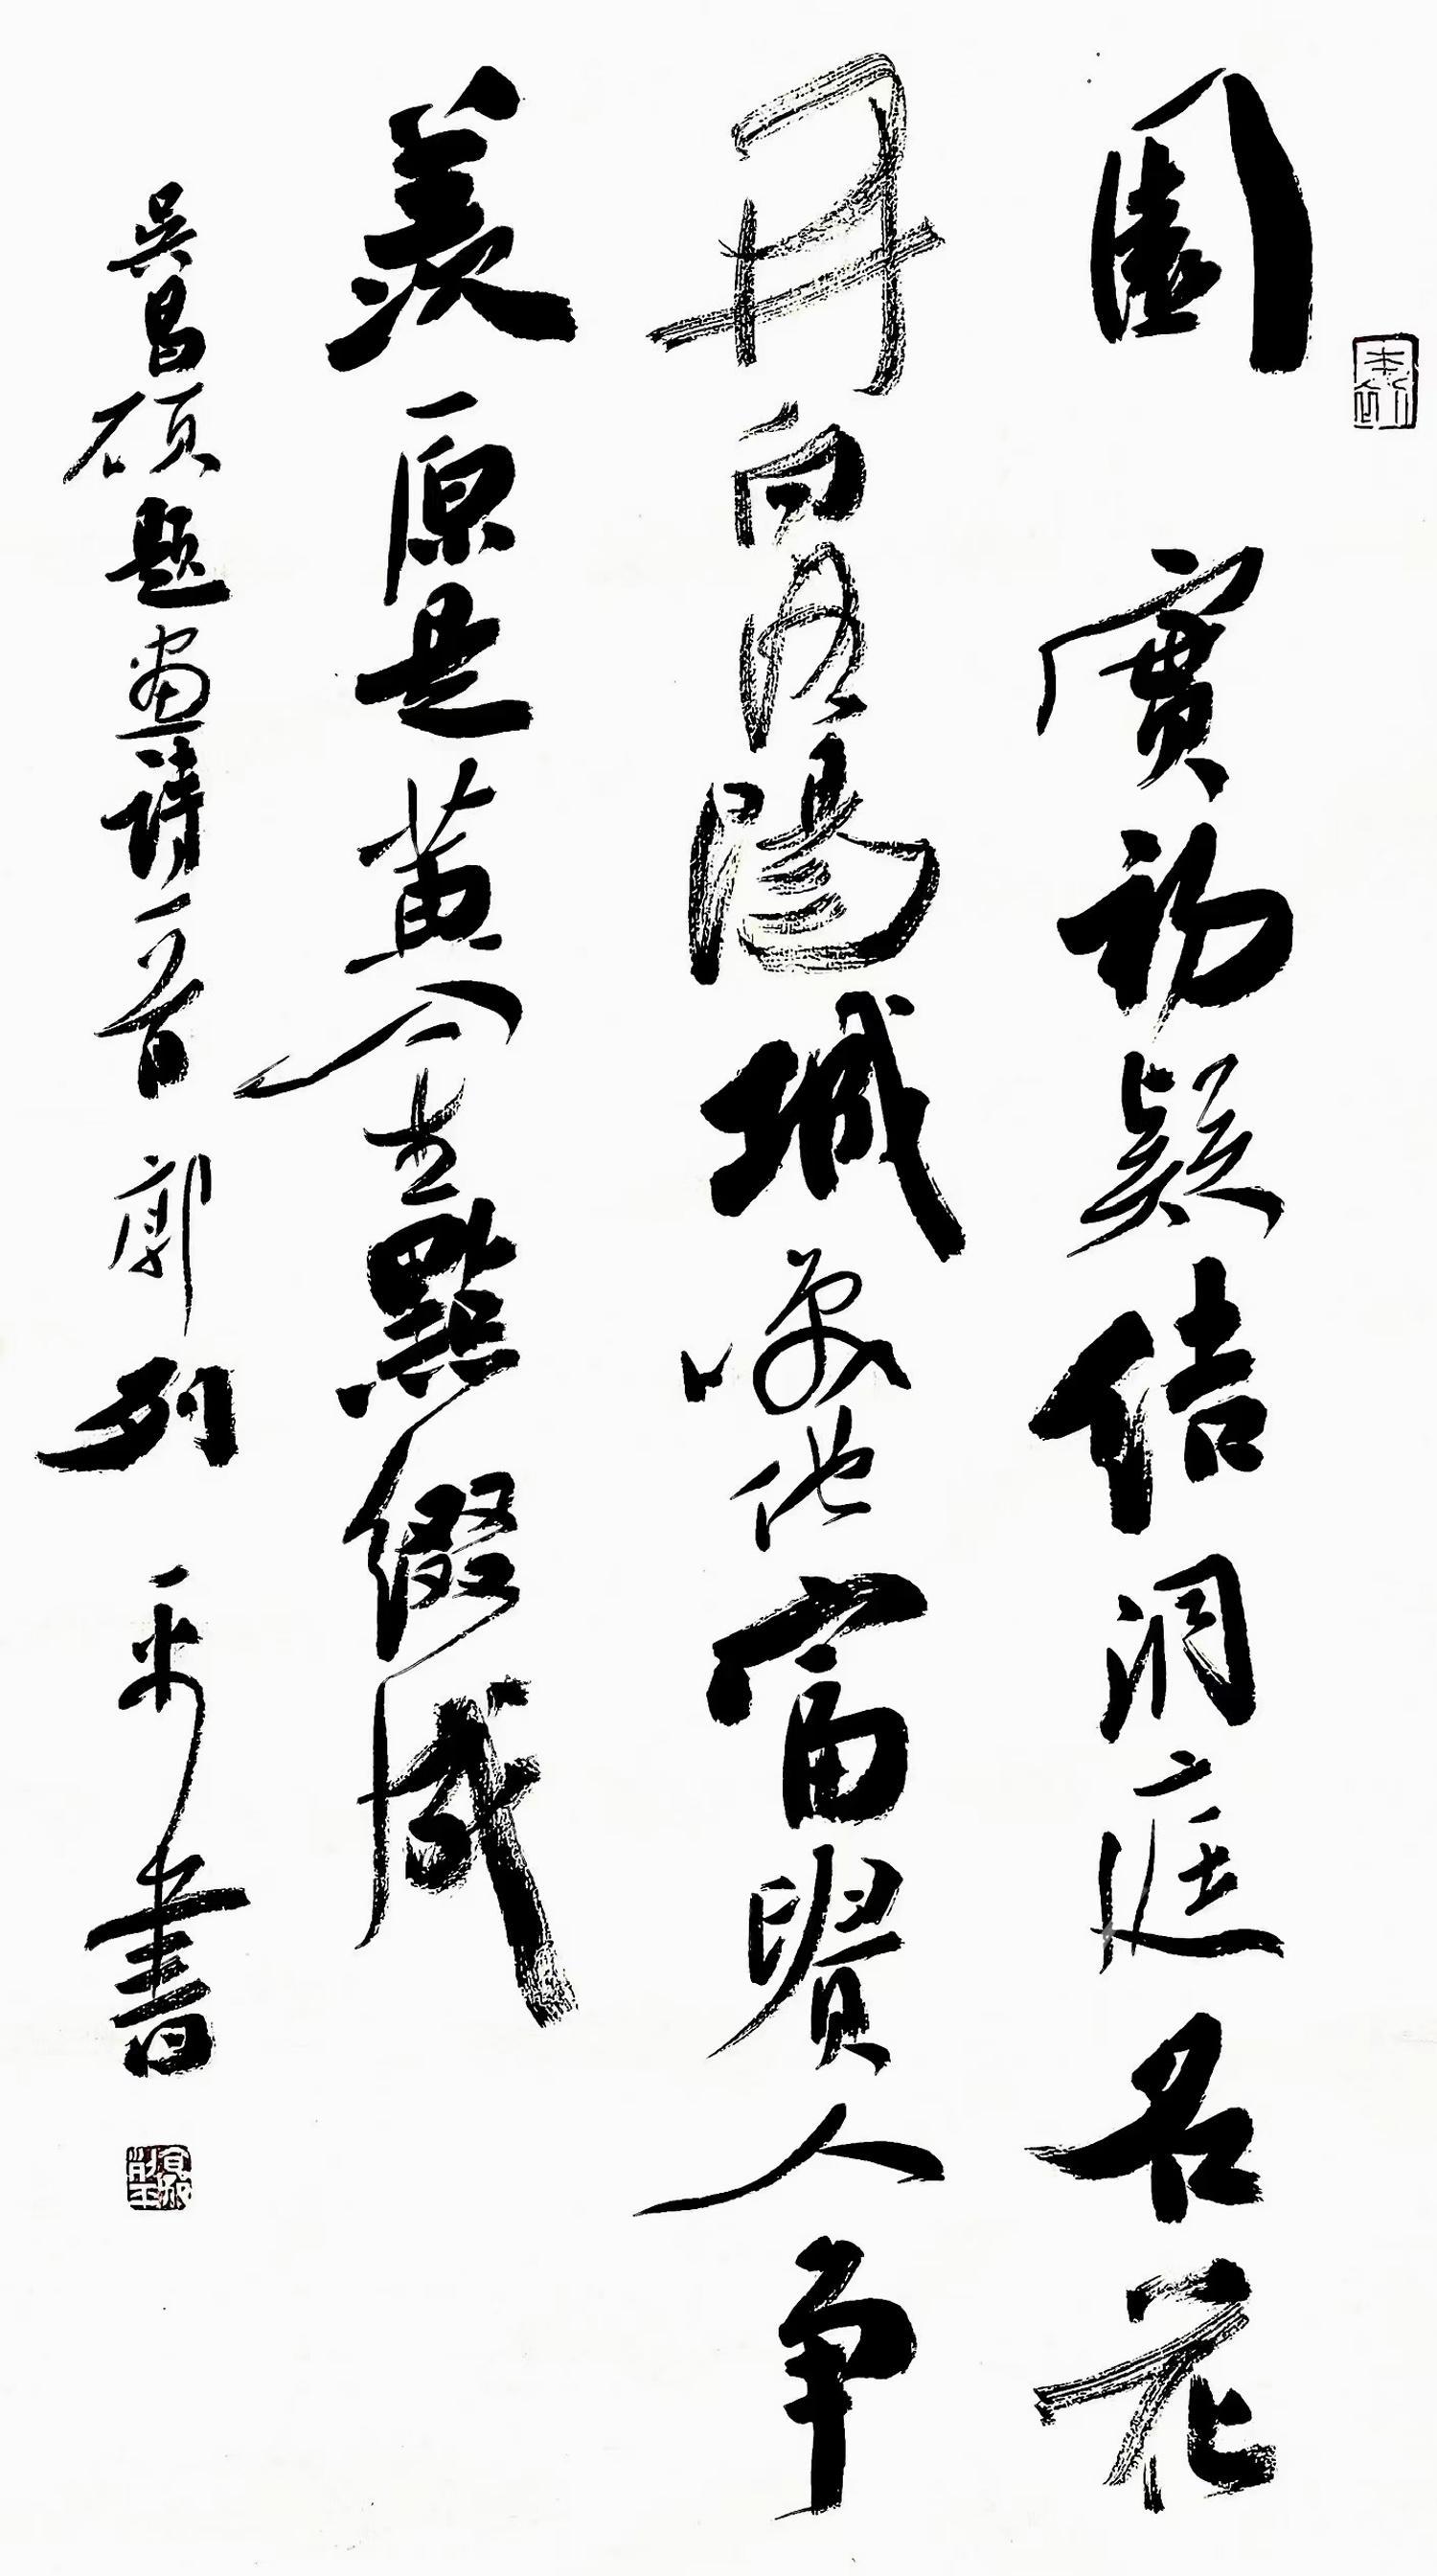 園實初疑結洞庭名花
再向洛陽城喚他富貴人爭
羨原是黃金點綴成
吳昌碩題畫詩一首 郭列平書